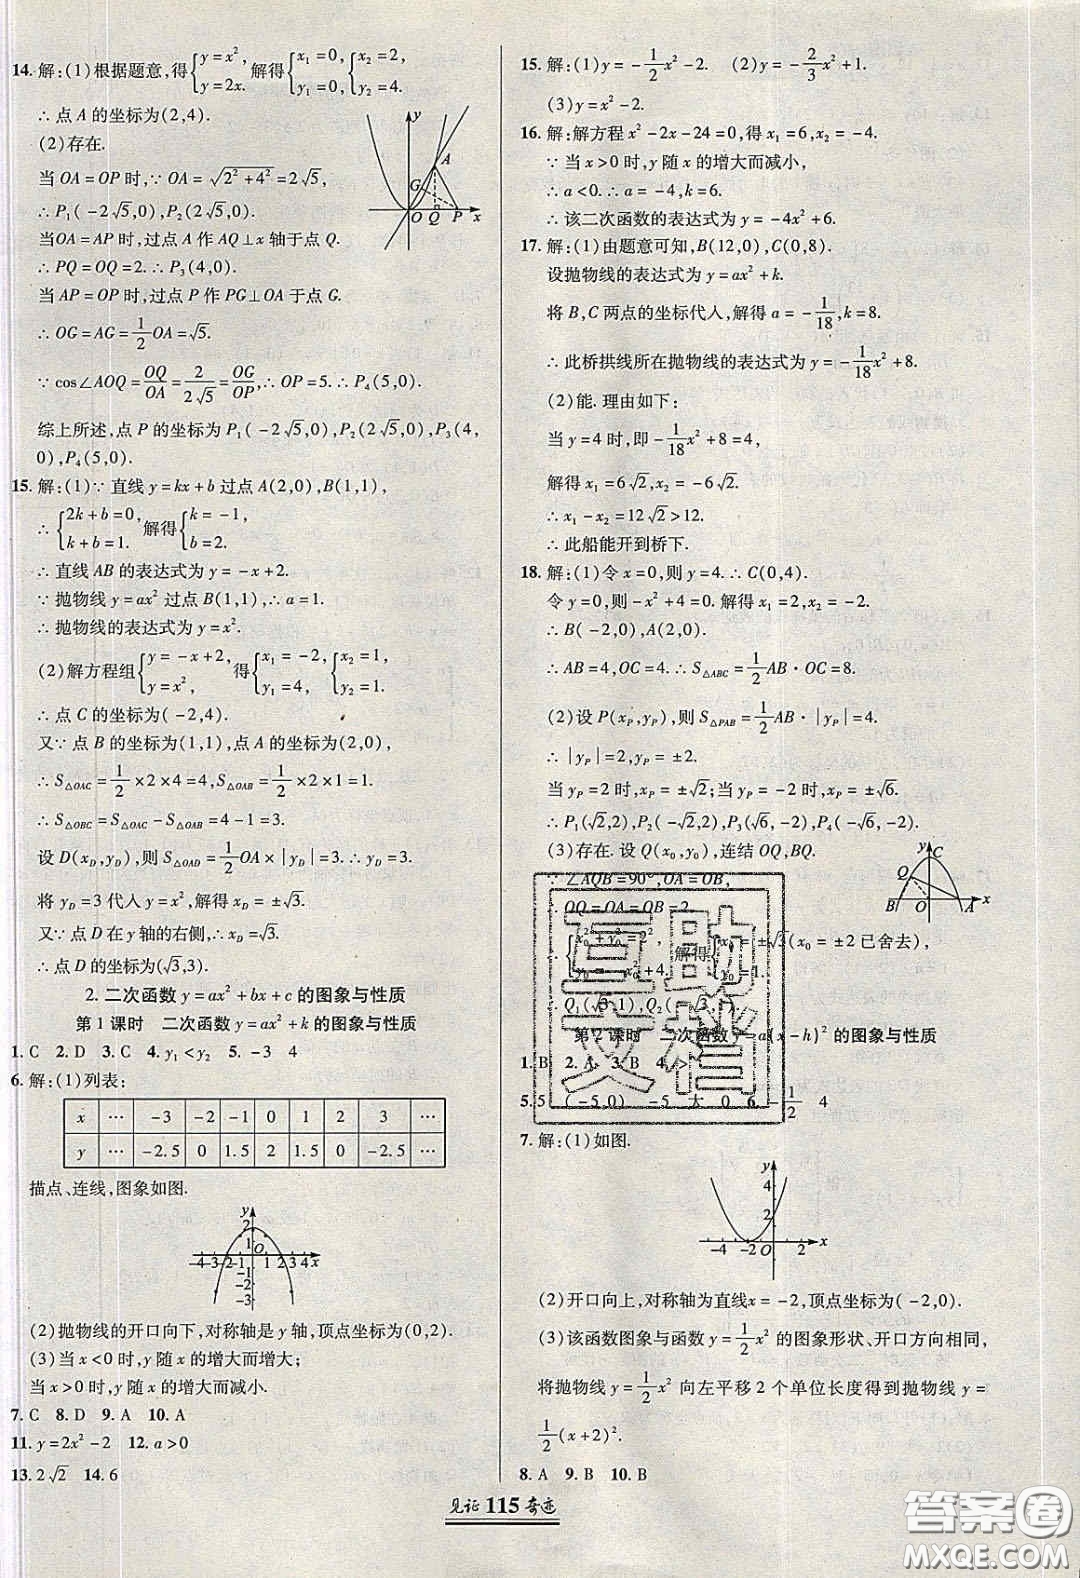 14. 解:(1)根据题意,得{y=x², y=2x. 解得{x₁=0, y₁=0, {x₂=2, y₂=4.
∴ 点 A 的坐标为(2,4).
(2)存在.
当 OA=OP 时,∵ OA=√(2²+4²)=2√5,
∴ P₁(-2√5,0),P₂(2√5,0).
当OA=AP 时,过点 A 作 AQ⊥x 轴于点 Q.
∴ PQ=OQ=2.∴ P₃(4,0).
当 AP=OP 时,过点 P 作 PG⊥OA 于点 G.
∴ OG=AG=1/2 OA=√5.
∵ cos∠AOQ=OQ/OA=2/(2√5)=OG/OP,∴ OP=5.∴ P₄(5,0).
综上所述,点 P 的坐标为 P₁(-2√5,0),P₂(2√5,0),P₃(4,
0),P₄(5,0).
y
A
G
O Q P x
15. 解:(1)∵ 直线 y=kx+b 过点 A(2,0),B(1,1),
∴ {2k+b=0, k+b=1. 解得{k=-1, b=2.
∴ 直线 AB 的表达式为 y=-x+2.
∵ 抛物线 y=ax² 过点 B(1,1),∴ a=1.
∴ 抛物线的表达式为 y=x².
(2)解方程组{y=-x+2, y=x², 得{x₁=-2, y₁=4, {x₂=1, y₂=1.
∴ 点 C 的坐标为(-2,4).
又∵ 点 B 的坐标为(1,1),点 A 的坐标为(2,0),
∴ S△OAC=1/2×2×4=4,S△OAB=1/2×2×1=1.
∴ S△OBC=S△OAC-S△OAB=4-1=3.
设 D(x_D,y_D),则 S△OAD=1/2 OA×|y_D|=3.∴ y_D=3.
将 y_D=3 代入 y=x²,解得 x_D=±√3.
又∵ 点 D 在 y 轴的右侧,∴ x_D=√3.
∴ 点 D 的坐标为(√3,3).
2. 二次函数 y=ax²+bx+c 的图象与性质
第 1 课时 二次函数 y=ax²+k 的图象与性质
1. C 2. D 3. C 4. y₁<y₂ 5. -3 4
6. 解:(1)列表:
x … -3 -2 -1 0 1 2 3 …
y … -2.5 0 1.5 2 1.5 0 -2.5 …
描点、连线,图象如图.
y
2
1
O
-4-3-2-1 1 2 3 4 x
-1
-2
-3
(2)抛物线的开口向下,对称轴是 y 轴,顶点坐标为(0,2).
(3)当 x<0 时,y 随 x 的增大而增大;
当 x>0 时,y 随 x 的增大而减小.
7. C 8. D 9. A 10. A
11. y=2x²-2 12. a>0
13. 2√2 14. 6
15. 解:(1)y=-1/2x²-2. (2)y=-2/3x²+1.
(3)y=x²-2.
16. 解:解方程 x²-2x-24=0,得 x₁=6,x₂=-4.
∵ 当 x>0 时,y 随 x 的增大而减小,
∴ a<0.∴ a=-4,k=6.
∴ 该二次函数的表达式为 y=-4x²+6.
17. 解:(1)由题意可知,B(12,0),C(0,8).
设抛物线的表达式为 y=ax²+k.
将 B,C 两点的坐标代入,解得 a=-1/18,k=8.
∴ 此桥拱线所在抛物线的表达式为 y=-1/18x²+8.
(2)能. 理由如下:
当 y=4 时,即-1/18x²+8=4,
解得 x₁=6√2,x₂=-6√2.
∴ x₁-x₂=12√2>12.
∴ 此船能开到桥下.
18. 解:(1)令 x=0,则 y=4.∴ C(0,4).
令 y=0,则-x²+4=0. 解得 x₁=2,x₂=-2.
∴ B(-2,0),A(2,0).
∴ AB=4,OC=4.∴ S△ABC=1/2 AB·OC=8.
(2)设 P(x_P,y_P),则 S△PAB=1/2 AB·|y_P|=4.
∴ |y_P|=2,y_P=±2.
当 y_P=2 时,x_P=±√2;当 y_P=-2 时,x_P=±√6.
∴ P₁(√2,2),P₂(-√2,2),P₃(√6,-2),P₄(-√6,-2).
(3)存在. 设 Q(x₀,y₀),连结 OQ,BQ.
∵ ∠AQB=90°,OA=OB,
∴ OQ=OA=OB=2.
∴ {x₀²+y₀²=2², y₀=-x₀²+4. 解得{x₀=±√3(x₀=±2 已舍去),
∴ Q₁(√3,1),Q₂(-√3,1).
y
C
Q
B O A x
第 2 课时 二次函数 y=a(x-h)² 的图象与性质
1. B 2. A 3. B 4. >
5. 5 (-5,0) -5 大 0 6. -1/2 4
7. 解:(1)如图.
y
4
2
-4 -2 O 2 x
(2)开口向上,对称轴为直线x=-2,顶点坐标为(-2,0).
(3)该函数图象与函数 y=1/2x² 的图象形状、开口方向相同,
将抛物线 y=1/2x² 向左平移 2 个单位长度得到抛物线 y=
1/2(x+2)².
8. A 9. B 10. B
见证 115 奇迹
互助文档
答案圈
MXQE.COM